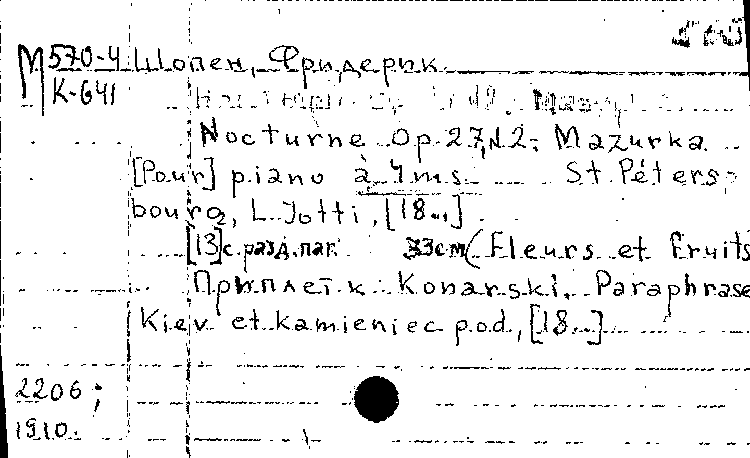 М 570-4 Шопен, Фридерик.
К-641
Nocturne Op. 27, N.2; Mazurka
[Pour] piano à 4 ms St. Péters-
bourg, L. Jotti, [18...].
[13] с. разд. паг. 33 см (Fleurs et Fruits
Приплет. к Konarski. Paraphrase
Kiev et Kamieniec pod., [18...]
2206;
1910.